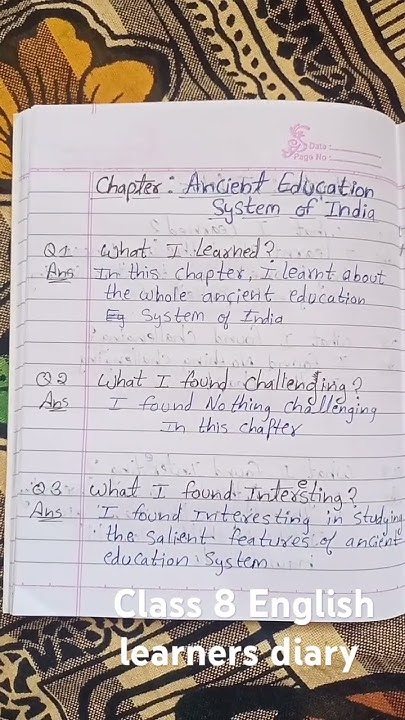 Date:
Page No:
Chapter: Ancient Education
System of India
Q1 What I Learned?
Ans In this chapter, I learnt about
the whole ancient education
Eg System of India
Q2 What I found challending?
Ans I found Nothing challenging
In this chapter
Q3 What I found Intersting?
Ans I found interesting in studying
the salient features of ancient
education System
Class 8 English
learners diary